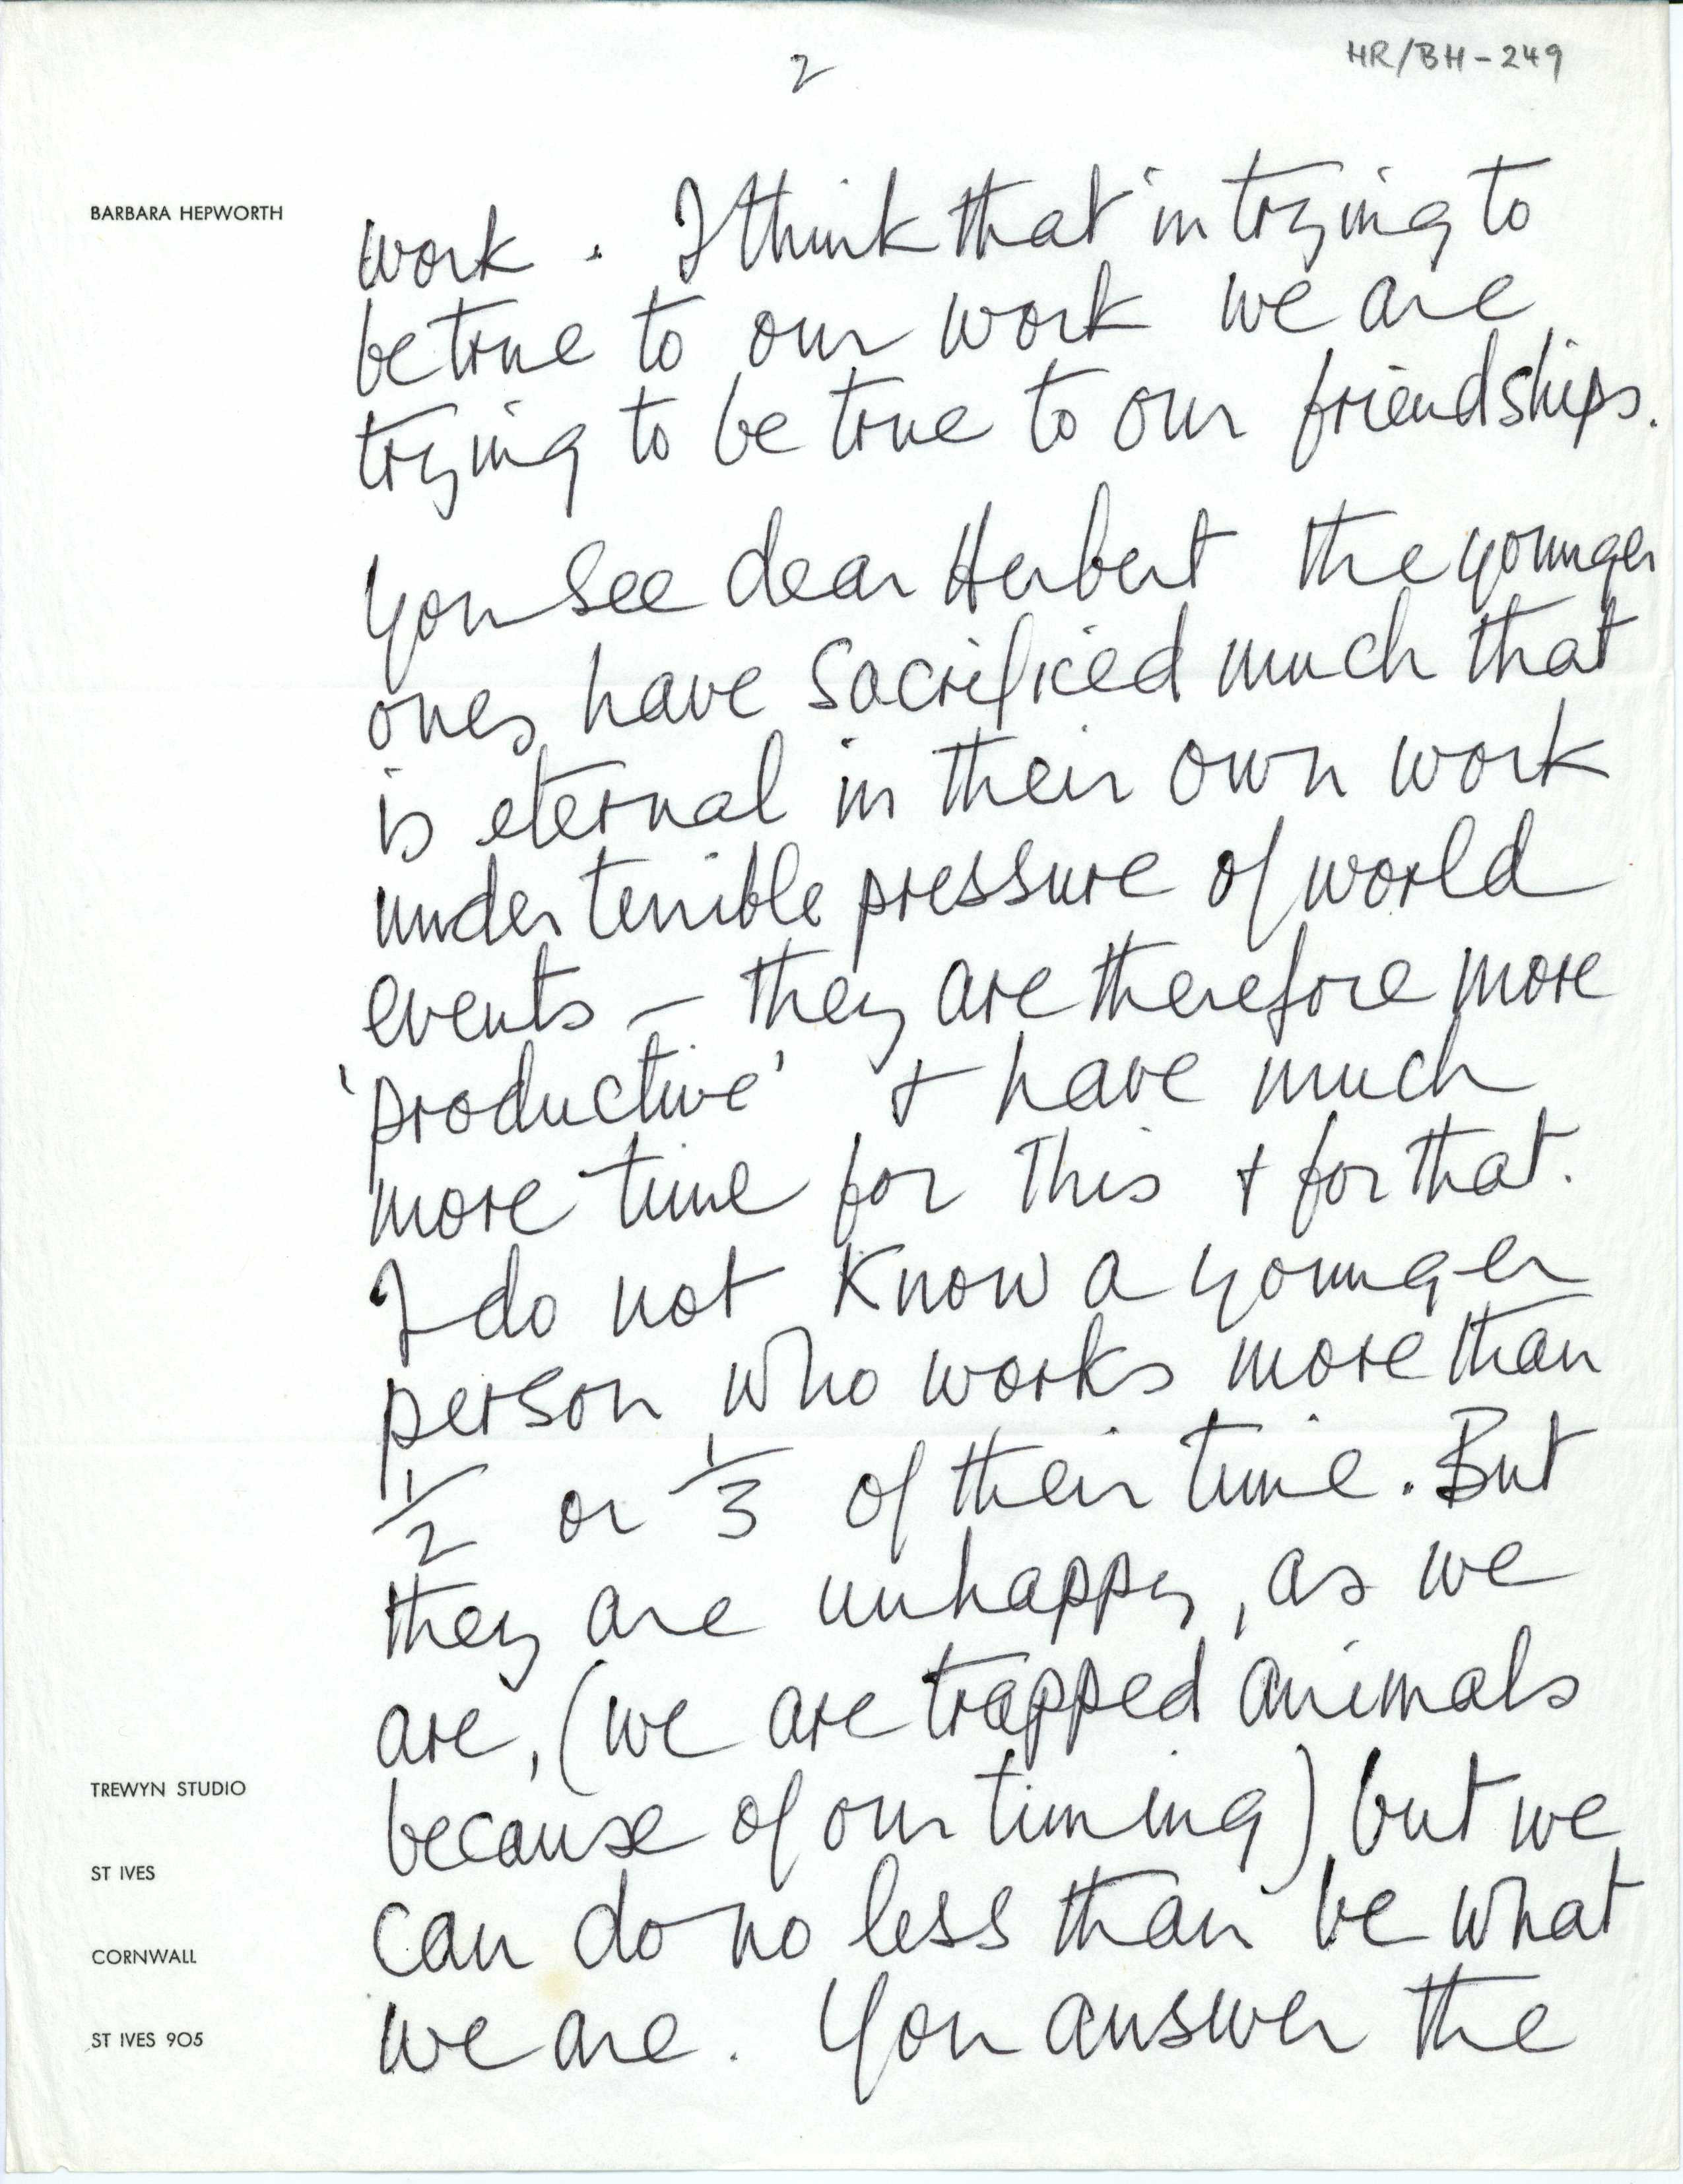 2
HR/BH-249
BARBARA HEPWORTH
work. I think that in trying to
be true to our work we are
trying to be true to our friendships.
You see dear Herbert the younger
ones have sacrificed much that
is eternal in their own work
under terrible pressure of world
events – they are therefore more
'productive' + have much
more time for this + for that.
I do not know a younger
person who works more than
1/2 or 1/3 of their time. But
they are unhappy, as we
are, (we are trapped animals
because of our timing) but we
can do no less than be what
we are. You answer the
TREWYN STUDIO
ST IVES
CORNWALL
ST IVES 905